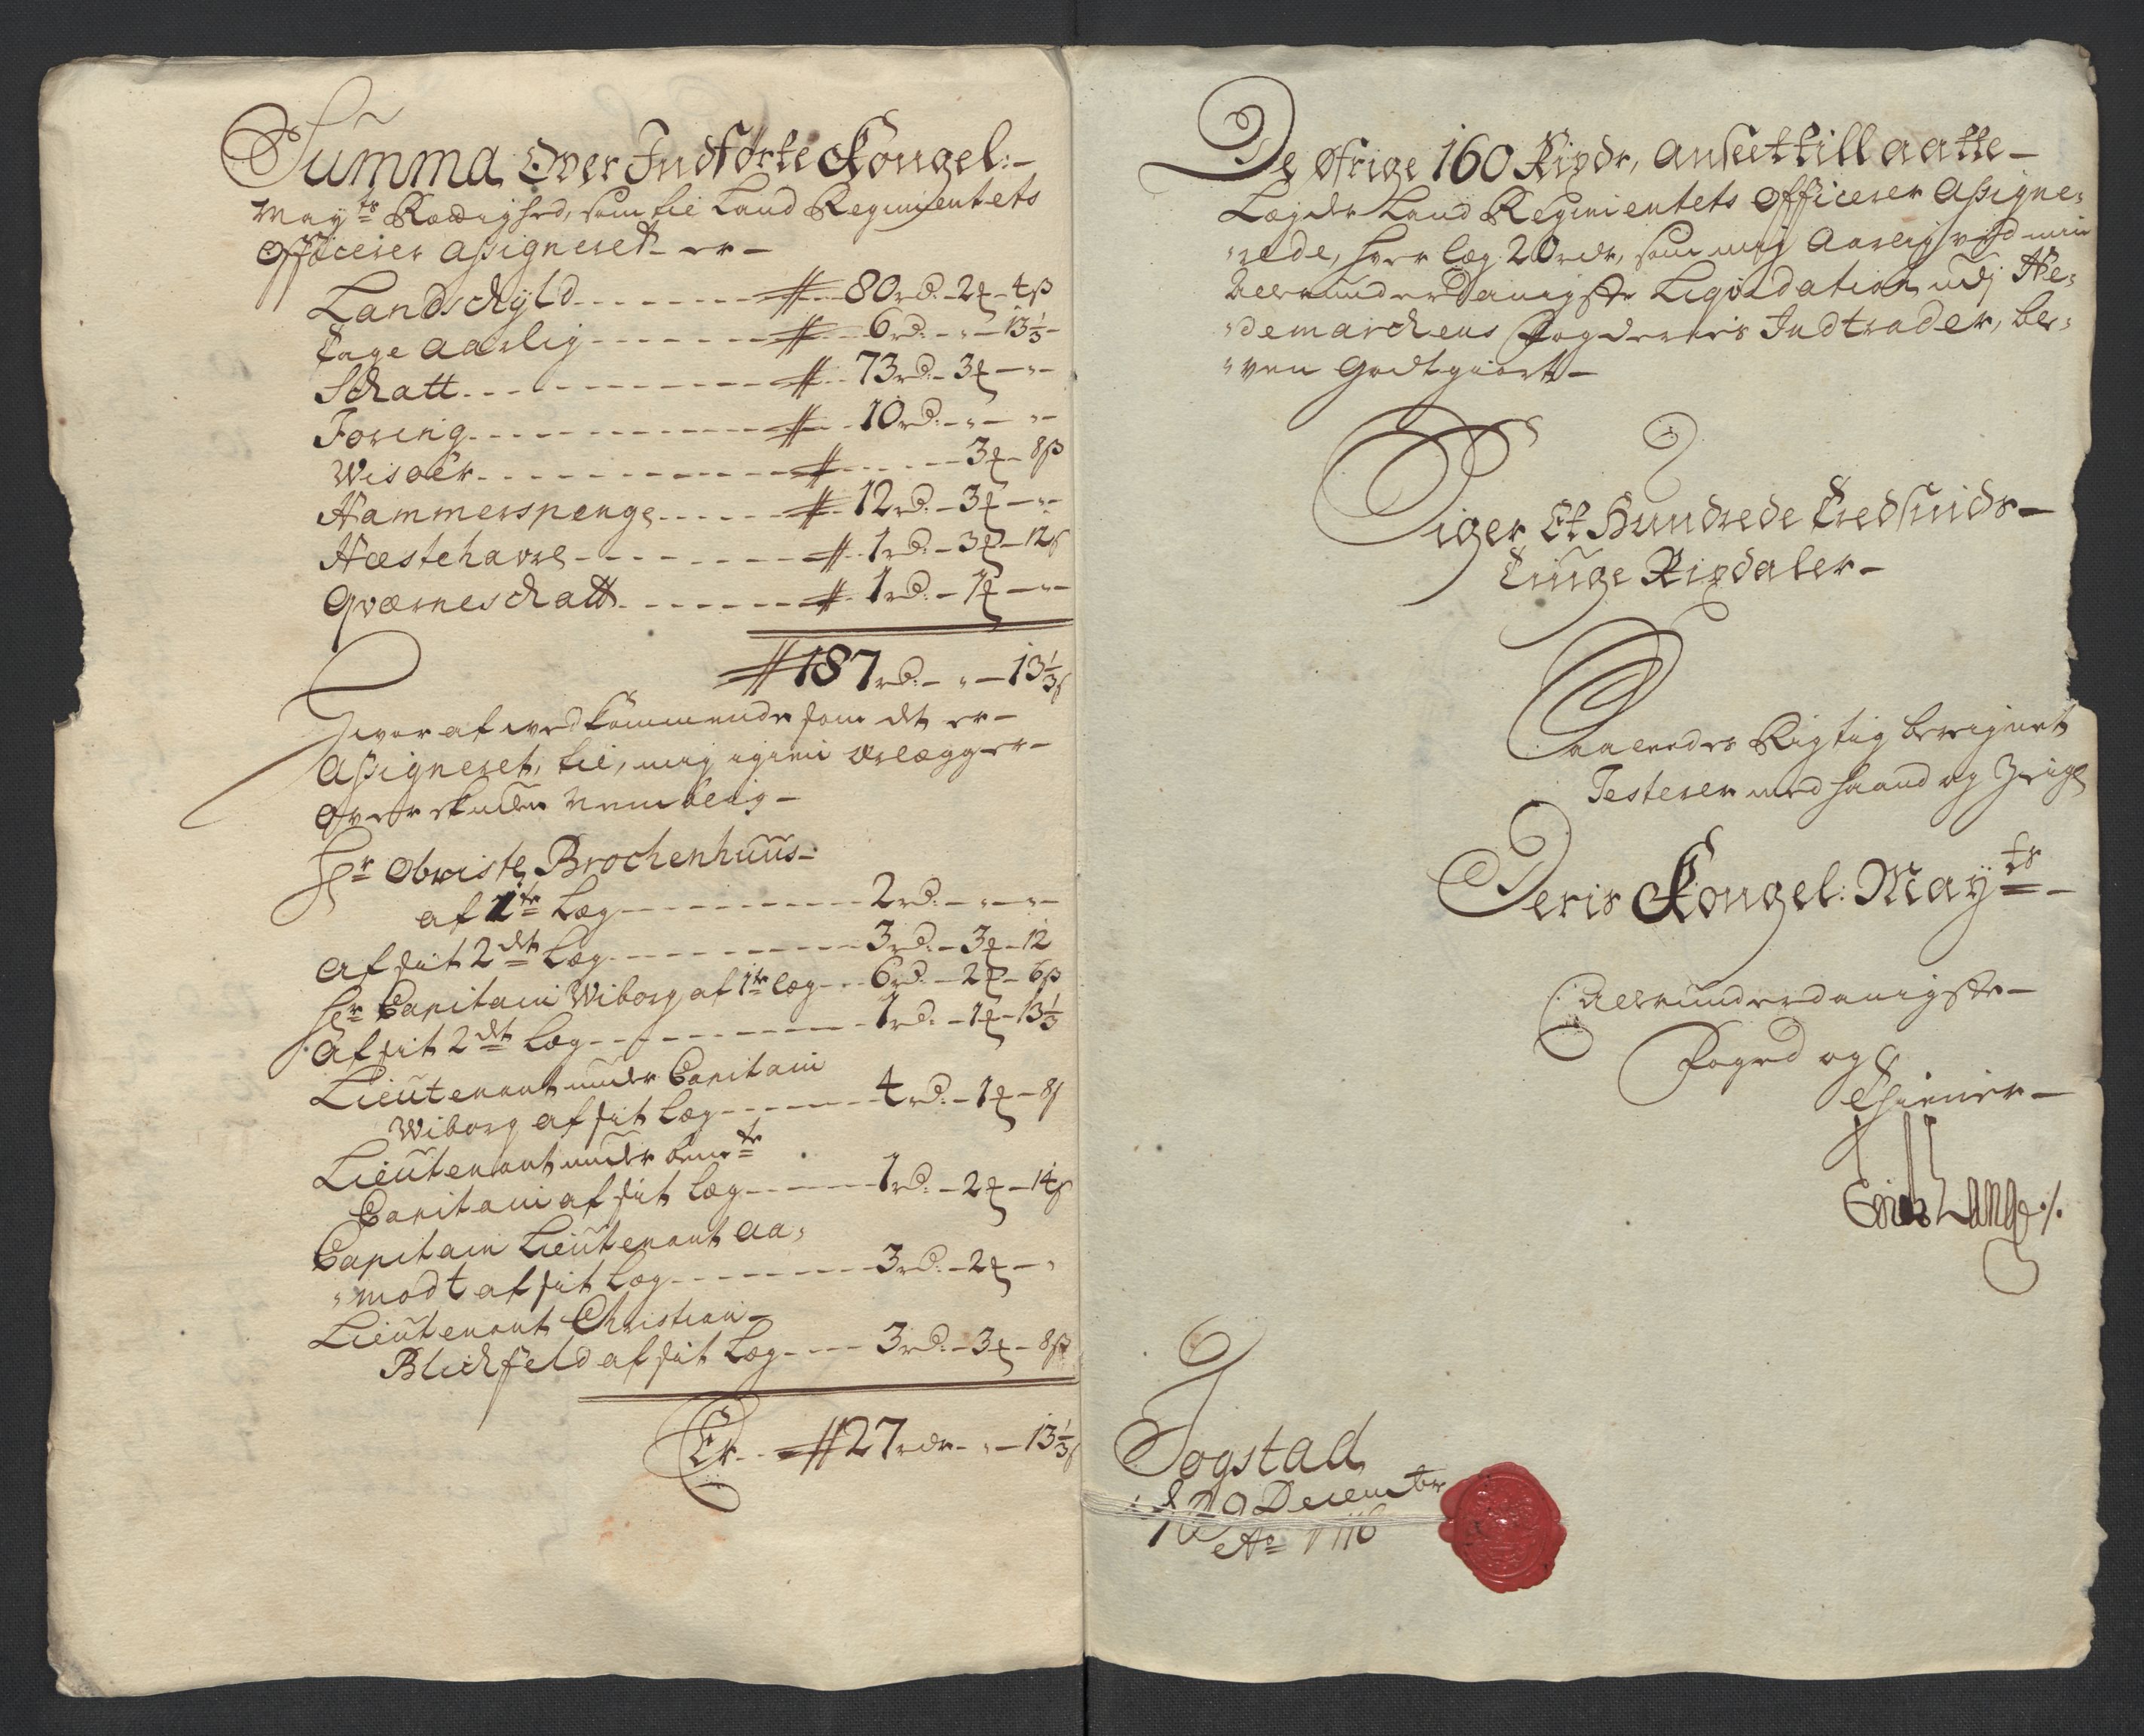 Summa Over Indförte Kongel:
May^ts Rættighed, som til Land Regimentets
Officerer Assigneret er
Landschyld # 80 rd: 2 ¢ 4 ß
Tage Aarlig # 6 rd: „ 13⅓
Schatt # 73 rd: 3 ¢ „
Foring # 10 rd: „ „
Wisöer # 3 ¢ 8 ß
Hammerspenge # 12 rd: 3 ¢ „
Hæstehavre # 1 rd: 3 ¢ 12 ß
Qværneschatt # 1 rd: 1 ¢ „
# 187 rd: „ 13⅓ ß
Hvor af vedkommende som det er
Assigneret, til mig igien erlægger
over skuden Nemblig
Hr Obriste Brochenhuus
af 1te Læg 2 rd: „ „
af sit 2det Læg 3 rd: 3 ¢ 12
Hr Capitain Wiborg af 1te læg 6 rd: 2 ¢ 6 ß
Af sit 2det Læg 1 rd: 1 ¢ 13⅓
Lieutenant under Capitain
Wiborg af sit Læg 4 rd: 1 ¢ 8 ß
Lieutenant under bem^te
Capitain af sit Læg 1 rd: 2 ¢ 14 ß
Capitain Lieutenant Aa„
„modt af sit Læg 3 rd: 2 ¢ „
Lieutenant Christian
Blichfeld af sit Læg 3 rd: 3 ¢ 8 ß
Er # 27 rdr „ 13⅓ ß
De öfrige 160 Rixdr, Anseet till aatte
Lægder Land Regimentets Officerer Assigne„
„rede, hver læg 20 rdr, som mig Aarlig ved min
Allerunderdanigste Liqvidation udj He„
„demarchens Fogderies Indtrader, ble„
„ven Godtgiort
Siger Et Hundrede Tredsinds
Tiuge Rixdaler
Saaledes Rigtig beregnet
Testerer med haand og Zeigl
Deris Kongel: May^ts
Allerunderdanigste
Foged og
Thienner
Lange ./.
Jogstad
d 29 Decembr
Ao 1716